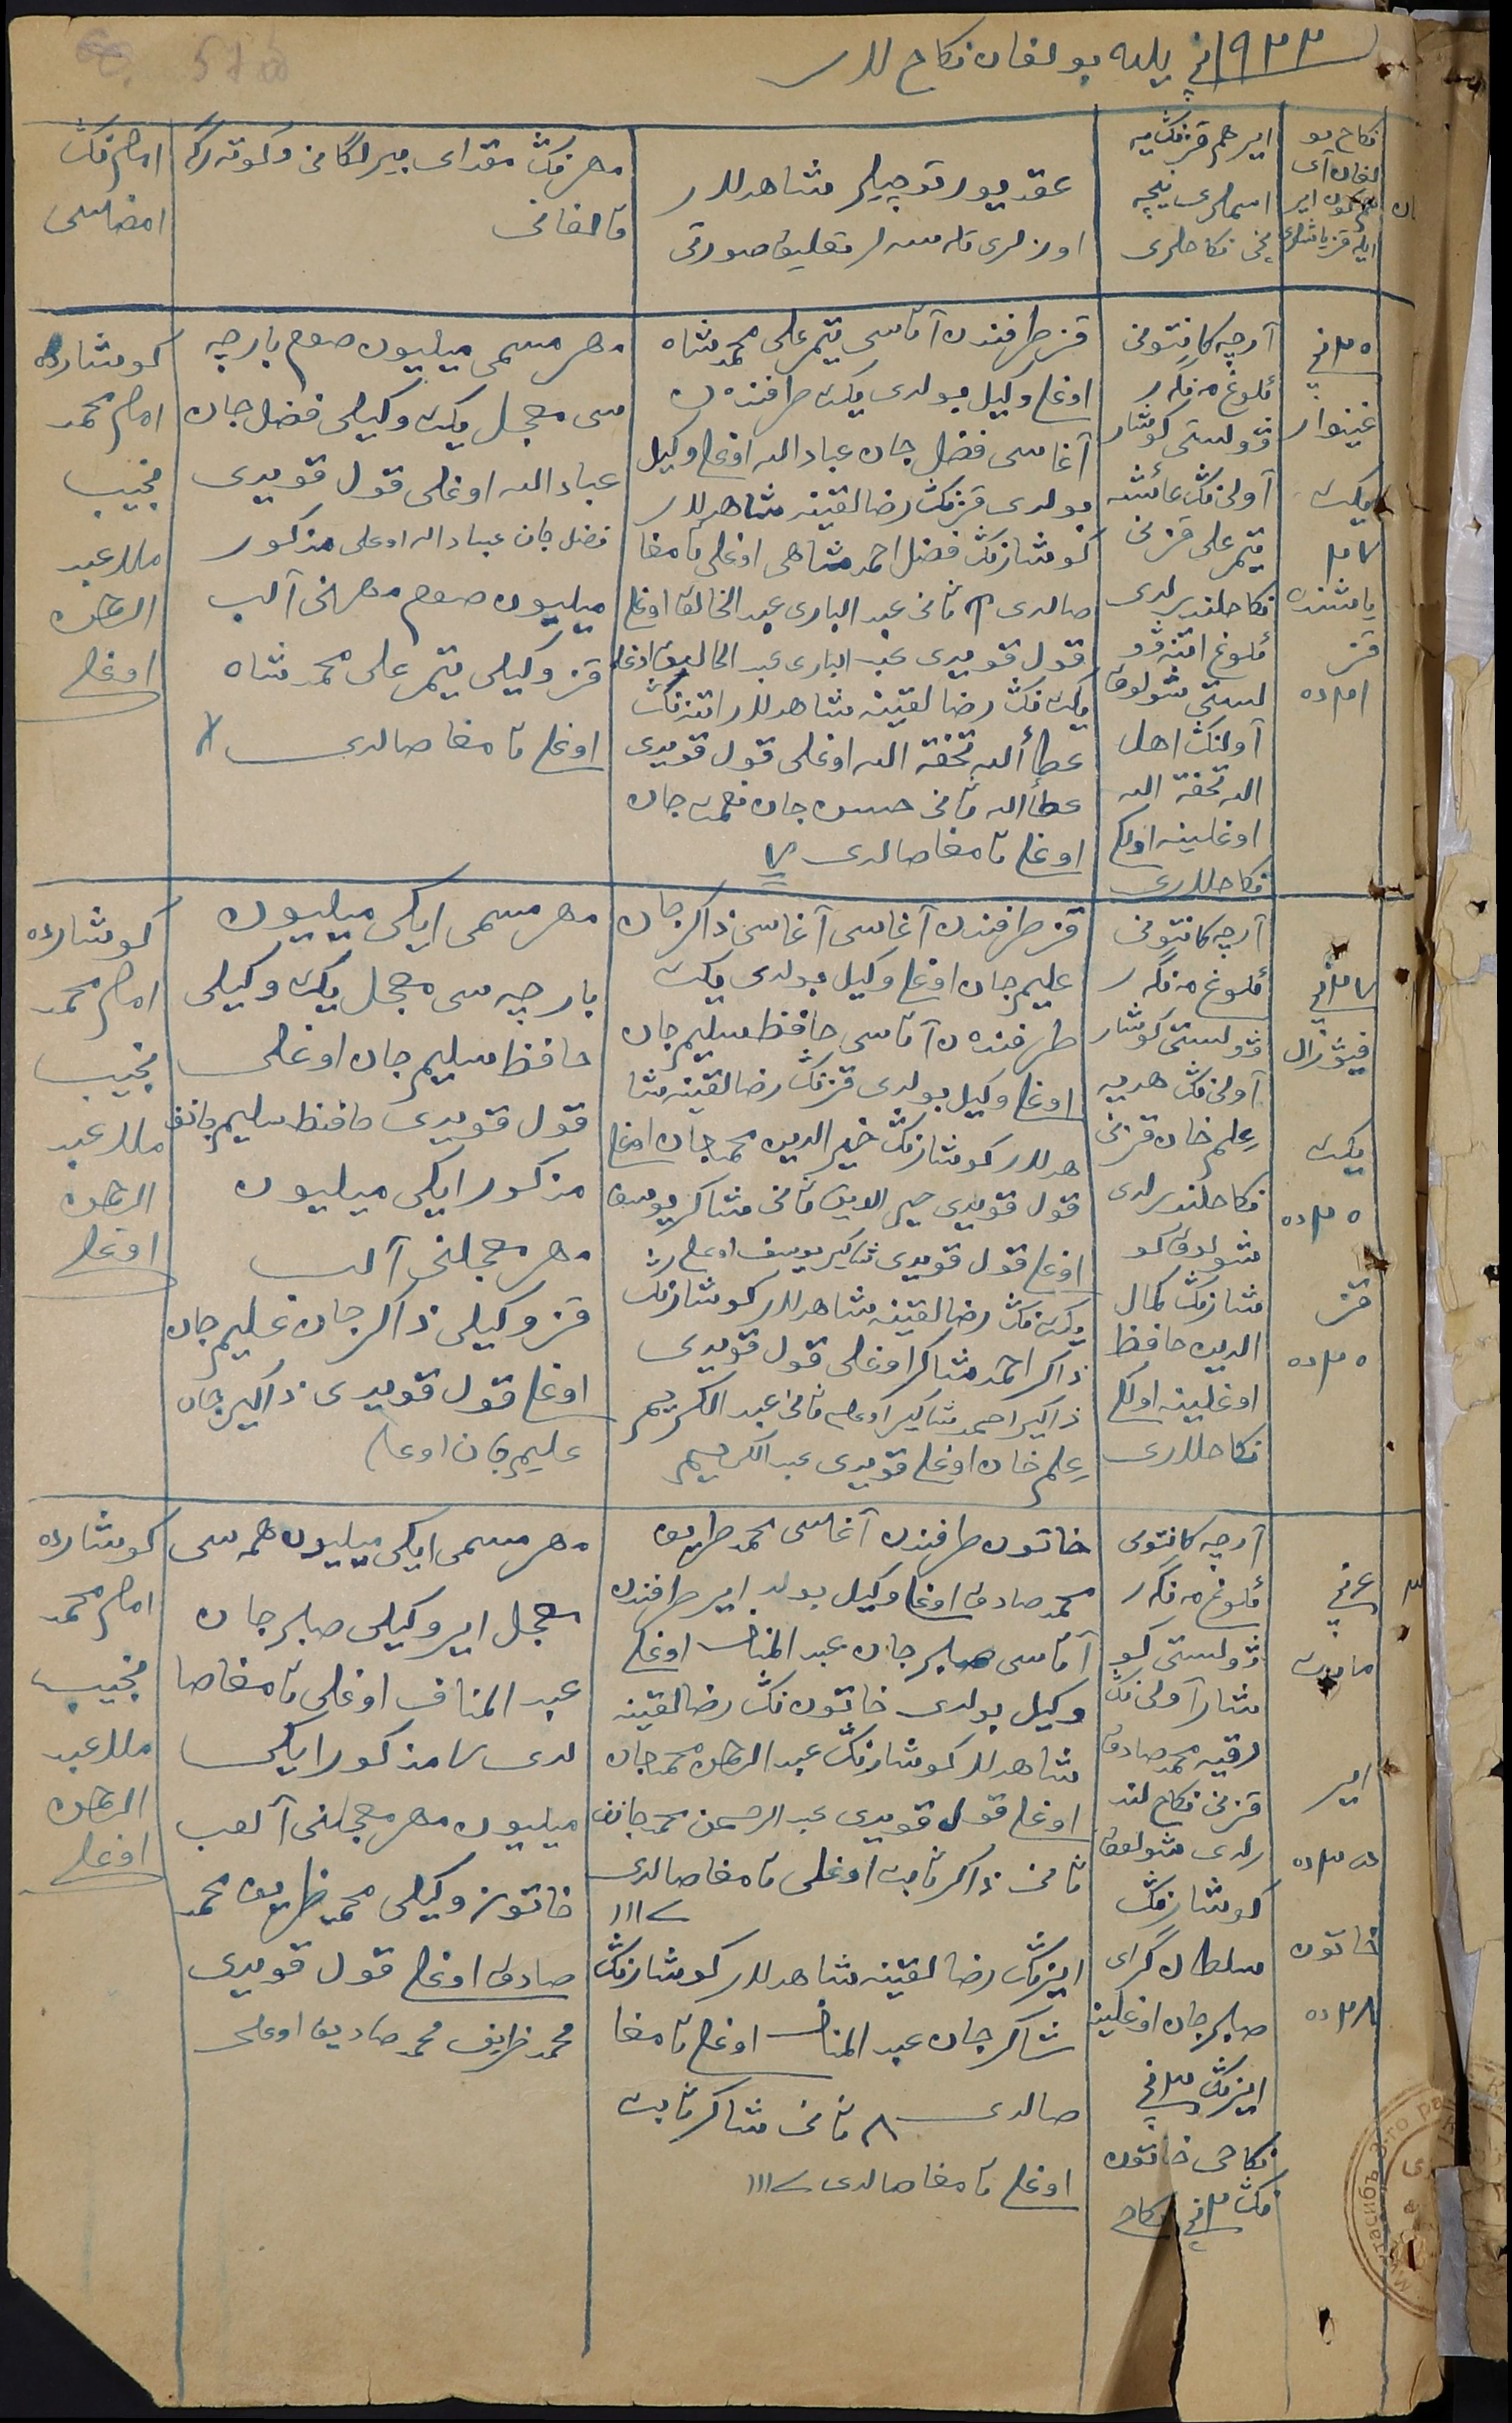 ١٩٢٣ نچی یلده بولغان نکاح لار
نکاح بو
لغان آی
هم کون ایر
ایله قز یاشلری
ایر هم قزنڭ
اسملری نیچه
نچی نکاحلری
عقد یورتوچیلر شاهدلار
اوزلری تله سه لر تعلیق صورتی
مهرنڭ مقداری بیرلگانی و کوته رگه
قالغانی
امام نڭ
امضاسی
غینوار
یکت
یاشنده
قز
آرچه کانتونی
ئلوغ مڭگر
ۋولستی کوشار
آولی نڭ عائشه
یتیم علی قزنی
نکاحلندرلدی
ئلوغ اتنه ۋو
لستی شولوق
آولنڭ اهل
الله تحفة الله
اوغلینه اولگی
نکاحلاری
قز طرفندن آتاسی یتیم علی محمد شاه
اوغلی وکیل بولدی یکت طرفندن
آغاسی فضل جان عباد الله اوغلی وکیل
بولدی قزنڭ رضالقینه شاهدلار
کوشارنڭ فضل احمد شاهی اوغلی تامغا
صالدی ثانی عبد الباری عبد الخالق اوغلی
قول قویدی عبد الباری عبد الخالیق اوغلی
یکت نڭ رضالقینه شاهدلار اتنه نڭ
عطاء الله تحفة الله اوغلی قول قویدی
عطاء الله ثانی حسن جان نعمت جان
اوغلی تامغا صالدی
مهر مسمی میلیون صوم بارچه
سی معجل یکت وکیلی فضل جان
عباد الله اوغلی قول قویدی
فضل جان عباد الله اوغلی مذکور
میلیون صوم مهرنی آلب
قز وکیلی یتیم علی محمد شاه
اوغلی تامغا صالدی
کوشارده
امام محمد
نجیب
ملا عبد
الرحمن
اوغلی
فیۋرال
یکت
قز
آرچه کانتونی
ئلوغ مڭگر
ۋولستی کوشار
آولی نڭ هدیه
علیم خان قزنی
نکاحلندرلدی
شولوق کو
شارنڭ کمال
الدین حافظ
اوغلینه اولگی
نکاحلاری
قز طرفندن آغاسی آغاسی ذاکر جان
علیم جان اوغلی وکیل بولدی یکت
طرفندن آتاسی حافظ سلیم جان
اوغلی وکیل بولدی قزنڭ رضالقینه شا
هدلار کوشارنڭ خیر الدین محمد جان اوغلی
قول قویدی خیر الدین ثانی شاکر یوسف
اوغلی قول قویدی شاکیر یوسف اوغلی
یکت نڭ رضالقینه شاهدلار کوشارنڭ
ذاکر احمد شاکر اوغلی قول قویدی
ذاکیر احمد شاکیر اوغلی ثانی عبد الکریم
علیم خان اوغلی قویدی عبد الکریم
مهر مسمی ایکی میلیون
بارچه سی معجل یکت وکیلی
حافظ سلیم جان اوغلی
قول قویدی حافظ سلیم جانف
مذکور ایکی میلیون
مهر معجلنی آلب
قز وکیلی ذاکر جان علیم جان
اوغلی قول قویدی ذاکیر جان
علیم جان اوغلی
کوشارده
امام محمد
نجیب
ملا عبد
الرحمن
اوغلی
مارت
ایر
خاتون
آرچه کانتونی
ئلوغ مڭگر
ۋولستی کو
شار آولی نڭ
رقیه محمد صادق
قزنی نکاح لند
رلدی شولوق
کوشارنڭ
سلطان گرای
صابر جان اوغلینه
ایرنڭ نچی
نکاحی خاتون
نڭ نچی نکاحی
خاتون طرفندن آغاسی محمد ظریف
محمد صادق اوغلی وکیل بولدی ایر طرفندن
آتاسی صابر جان عبد المناف اوغلی
وکیل بولدی خاتون نڭ رضالقینه
شاهدلار کوشارنڭ عبد الرحمن محمد جان
اوغلی قول قویدی عبد الرحمن محمد جانف
ثانی ذاکر ثابت اوغلی تامغا صالدی
ایرنڭ رضالقینه شاهدلار کوشارنڭ
شاکر جان عبد المناف اوغلی تامغا
صالدی ثانی شاکر ثابت
اوغلی تامغا صالدی
مهر مسمی ایکی میلیون همه سی
معجل ایر وکیلی صابر جان
عبد المناف اوغلی تامغا صا
لدی مذکور ایکی
میلیون مهر معجلنی آلب
خاتون وکیلی محمد ظریف محمد
صادق اوغلی قول قویدی
محمد ظریف محمد صادیق اوغلی
کوشارده
امام محمد
نجیب
ملا عبد
الرحمن
اوغلی